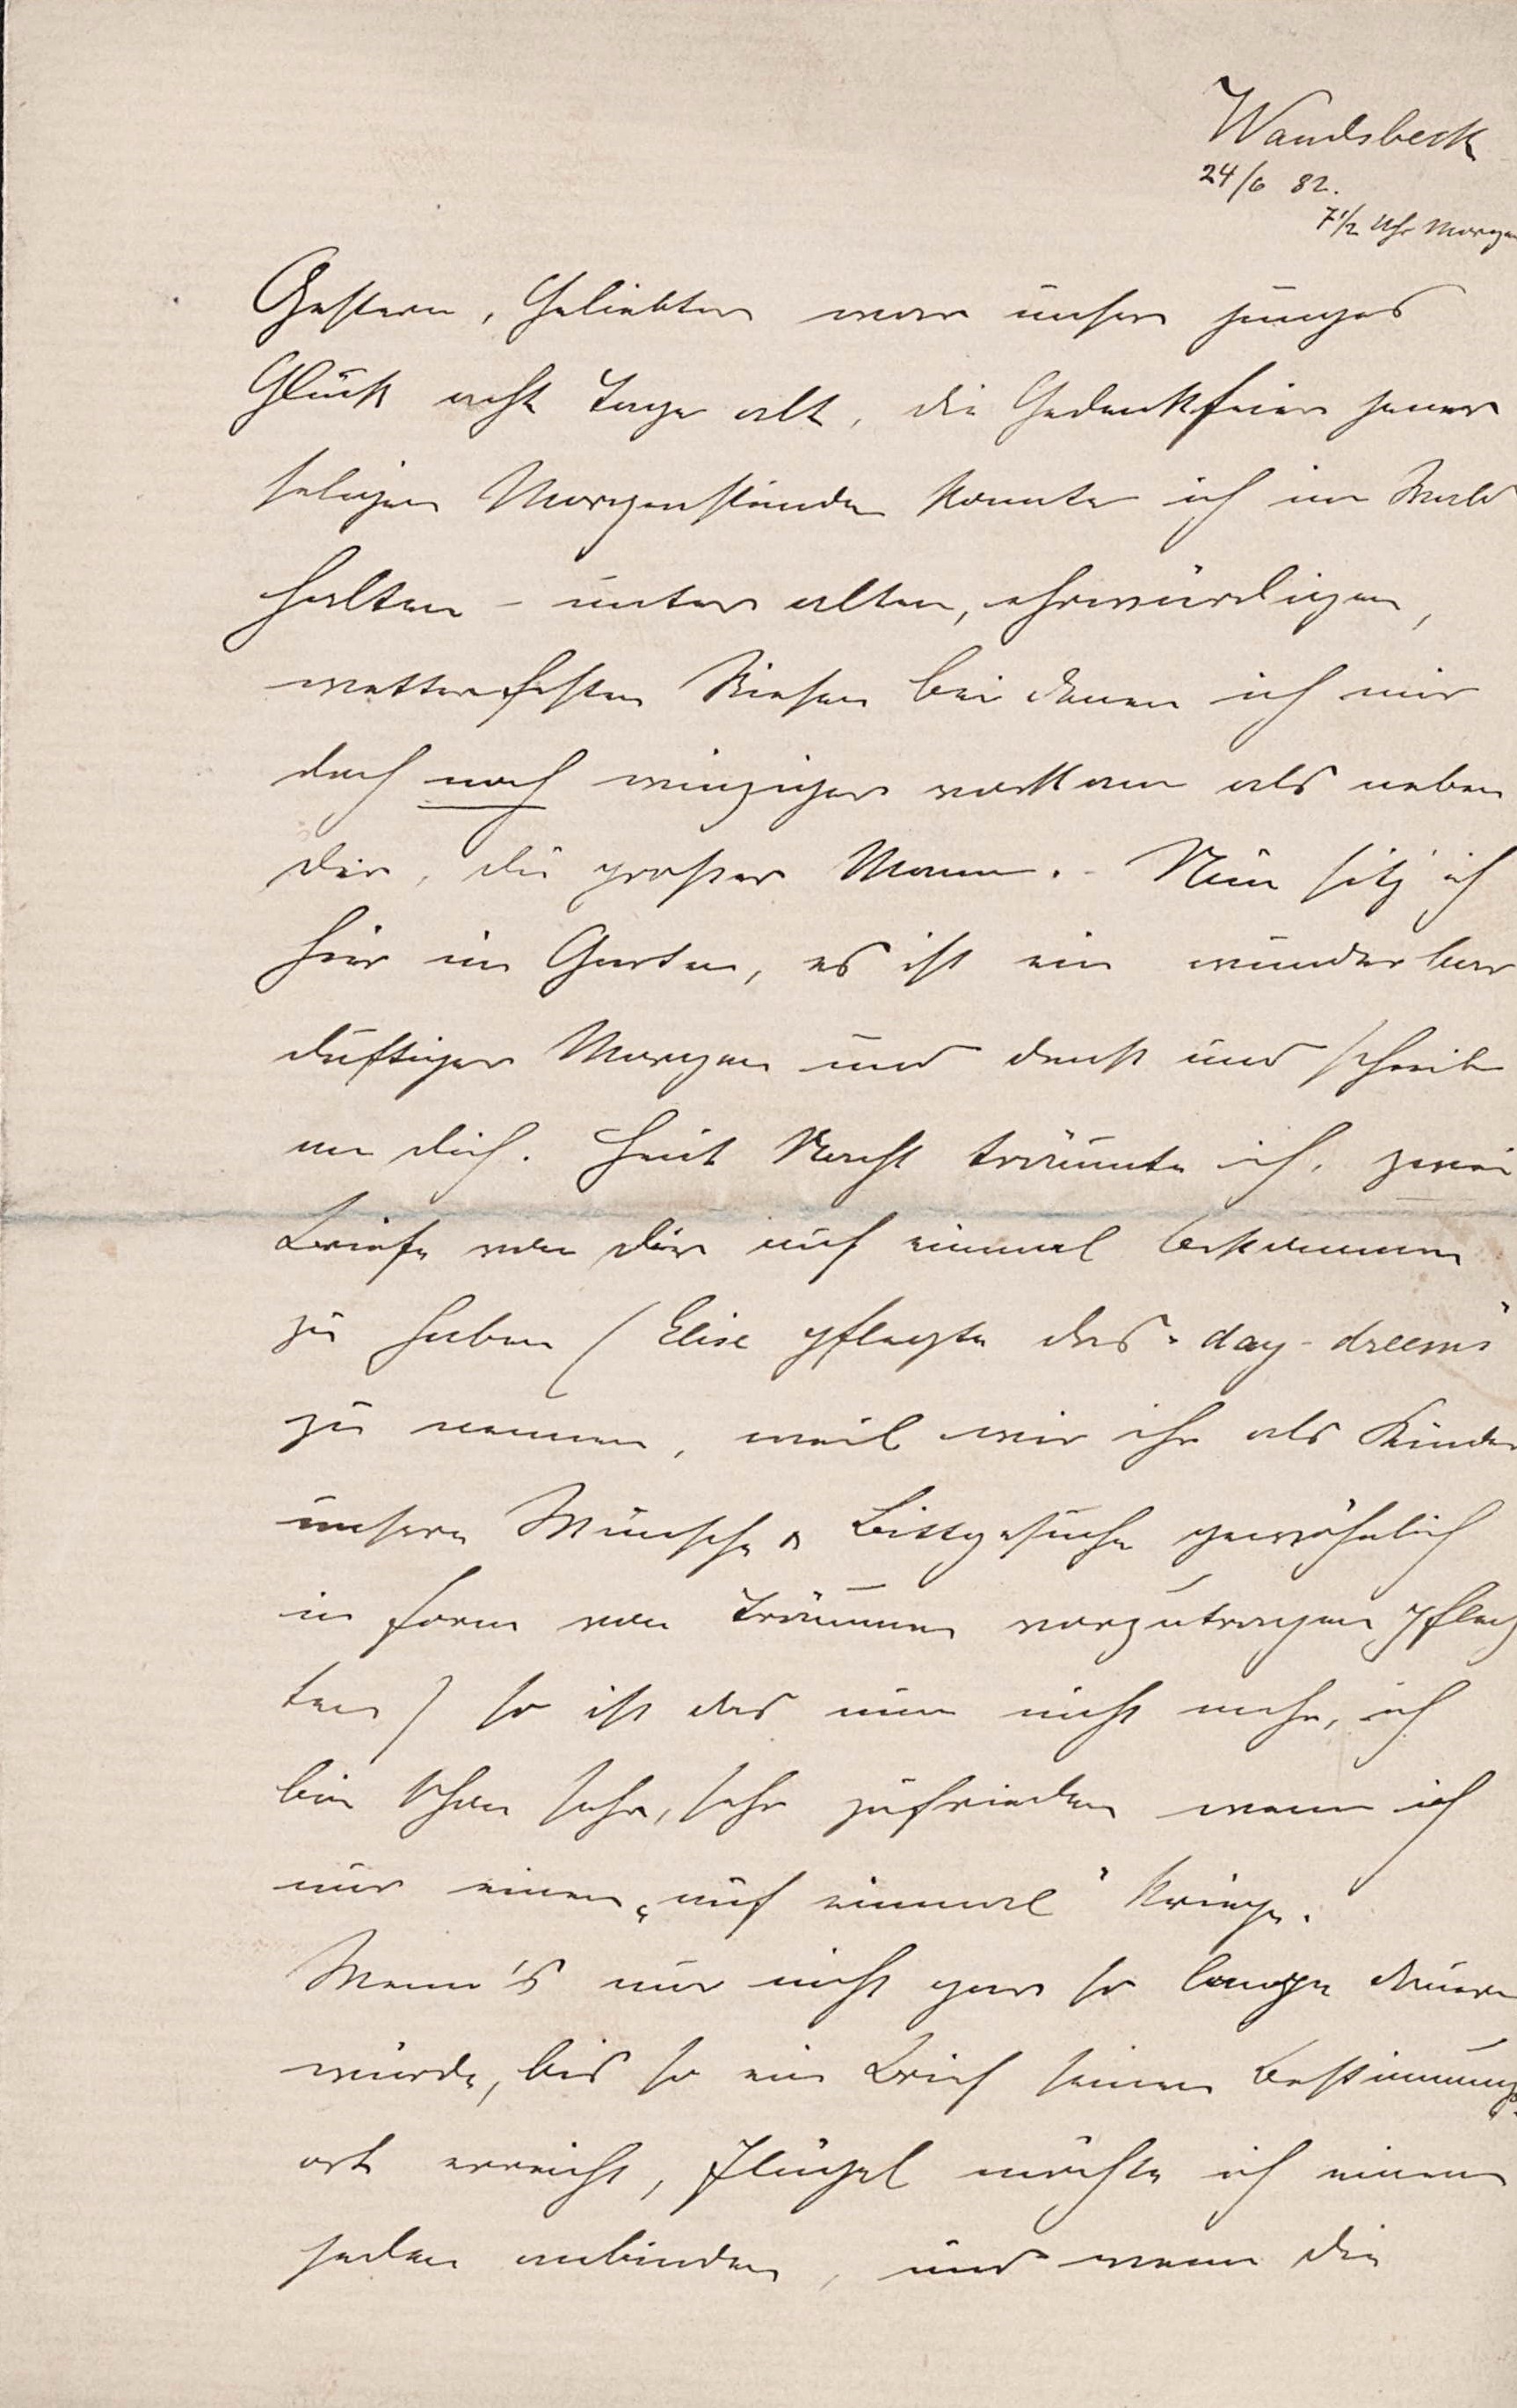 Wandsbeck
24/6 82.
7 1/2 Uhr Morgen
Gestern, Geliebter war unser junges
Glück acht Tage alt, die Gedenkfeier jener
seligen Morgenstunde konnte ich im Wald
halten – unter alten, ehrwürdigen,
wetterfesten Riesen bei denen ich mir
doch noch winziger vorkam als neben
dir, du großer Mann. – Nun sitz ich
hier im Garten, es ist ein wunderbar
duftiger Morgen und denk und schreib
an dich. Heut Nacht träumte ich, zwei
Briefe von dir auf einmal bekommen
zu haben (Elise pflegte das „day-dreems"
zu nennen, weil wir ihr als Kinder
unsere Wünsche & Bittgesuche gewöhnlich
in Form von Träumen vorzutragen pfleg
ten) so ist das nun nicht mehr, ich
bin schon sehr, sehr zufrieden wenn ich
nur einen „auf einmal" kriege.
Wenn's nur nicht gar so lange dauern
würde, bis so ein Brief seinen Bestimmungs-
ort erreicht, Flügel möchte ich einem
jeden anbinden, und wenn die